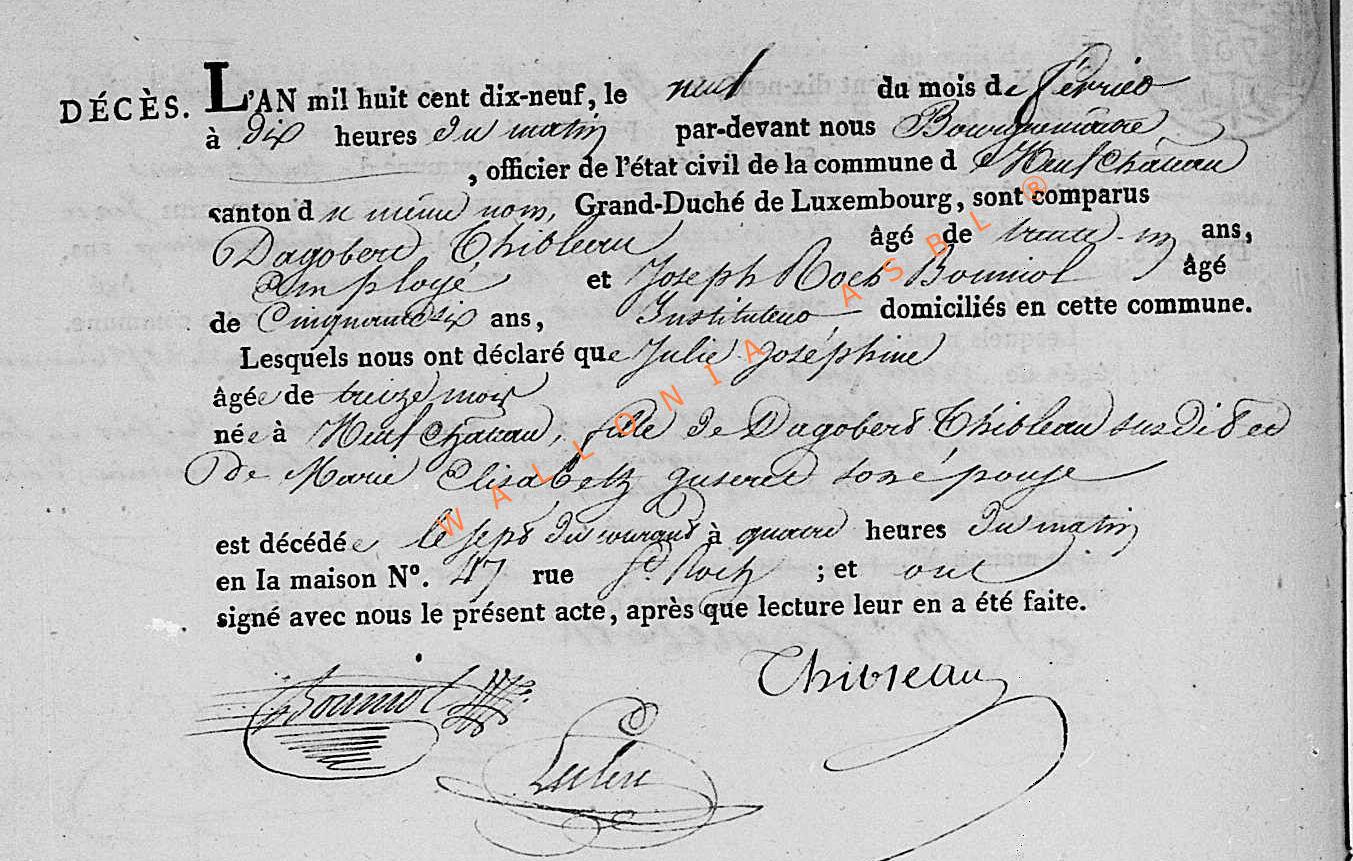 DÉCÈS. L'AN mil huit cent dix-neuf, le neuf du mois de février
à dix heures du matin par-devant nous Bourguemaître
, officier de l'état civil de la commune de Neufchateau
canton du même nom, Grand-Duché de Luxembourg, sont comparus
Dagobert Thibleau âgé de trente-un ans,
Employé et Joseph Roch Bouniol âgé
de Cinquante six ans, Instituteur domiciliés en cette commune.
Lesquels nous ont déclaré que Julie Joséphine
âgée de treize mois
née à Neufchateau, fille de Dagobert Thibleau susdit et
de Marie Elisabeth son épouse
est décédée le sept du courant à quatre heures du matin
en la maison N°. 47 rue St. Roch ; et ont
signé avec nous le présent acte, après que lecture leur en a été faite.
Bouniol Thibleau
WALLONIA ASBL ®